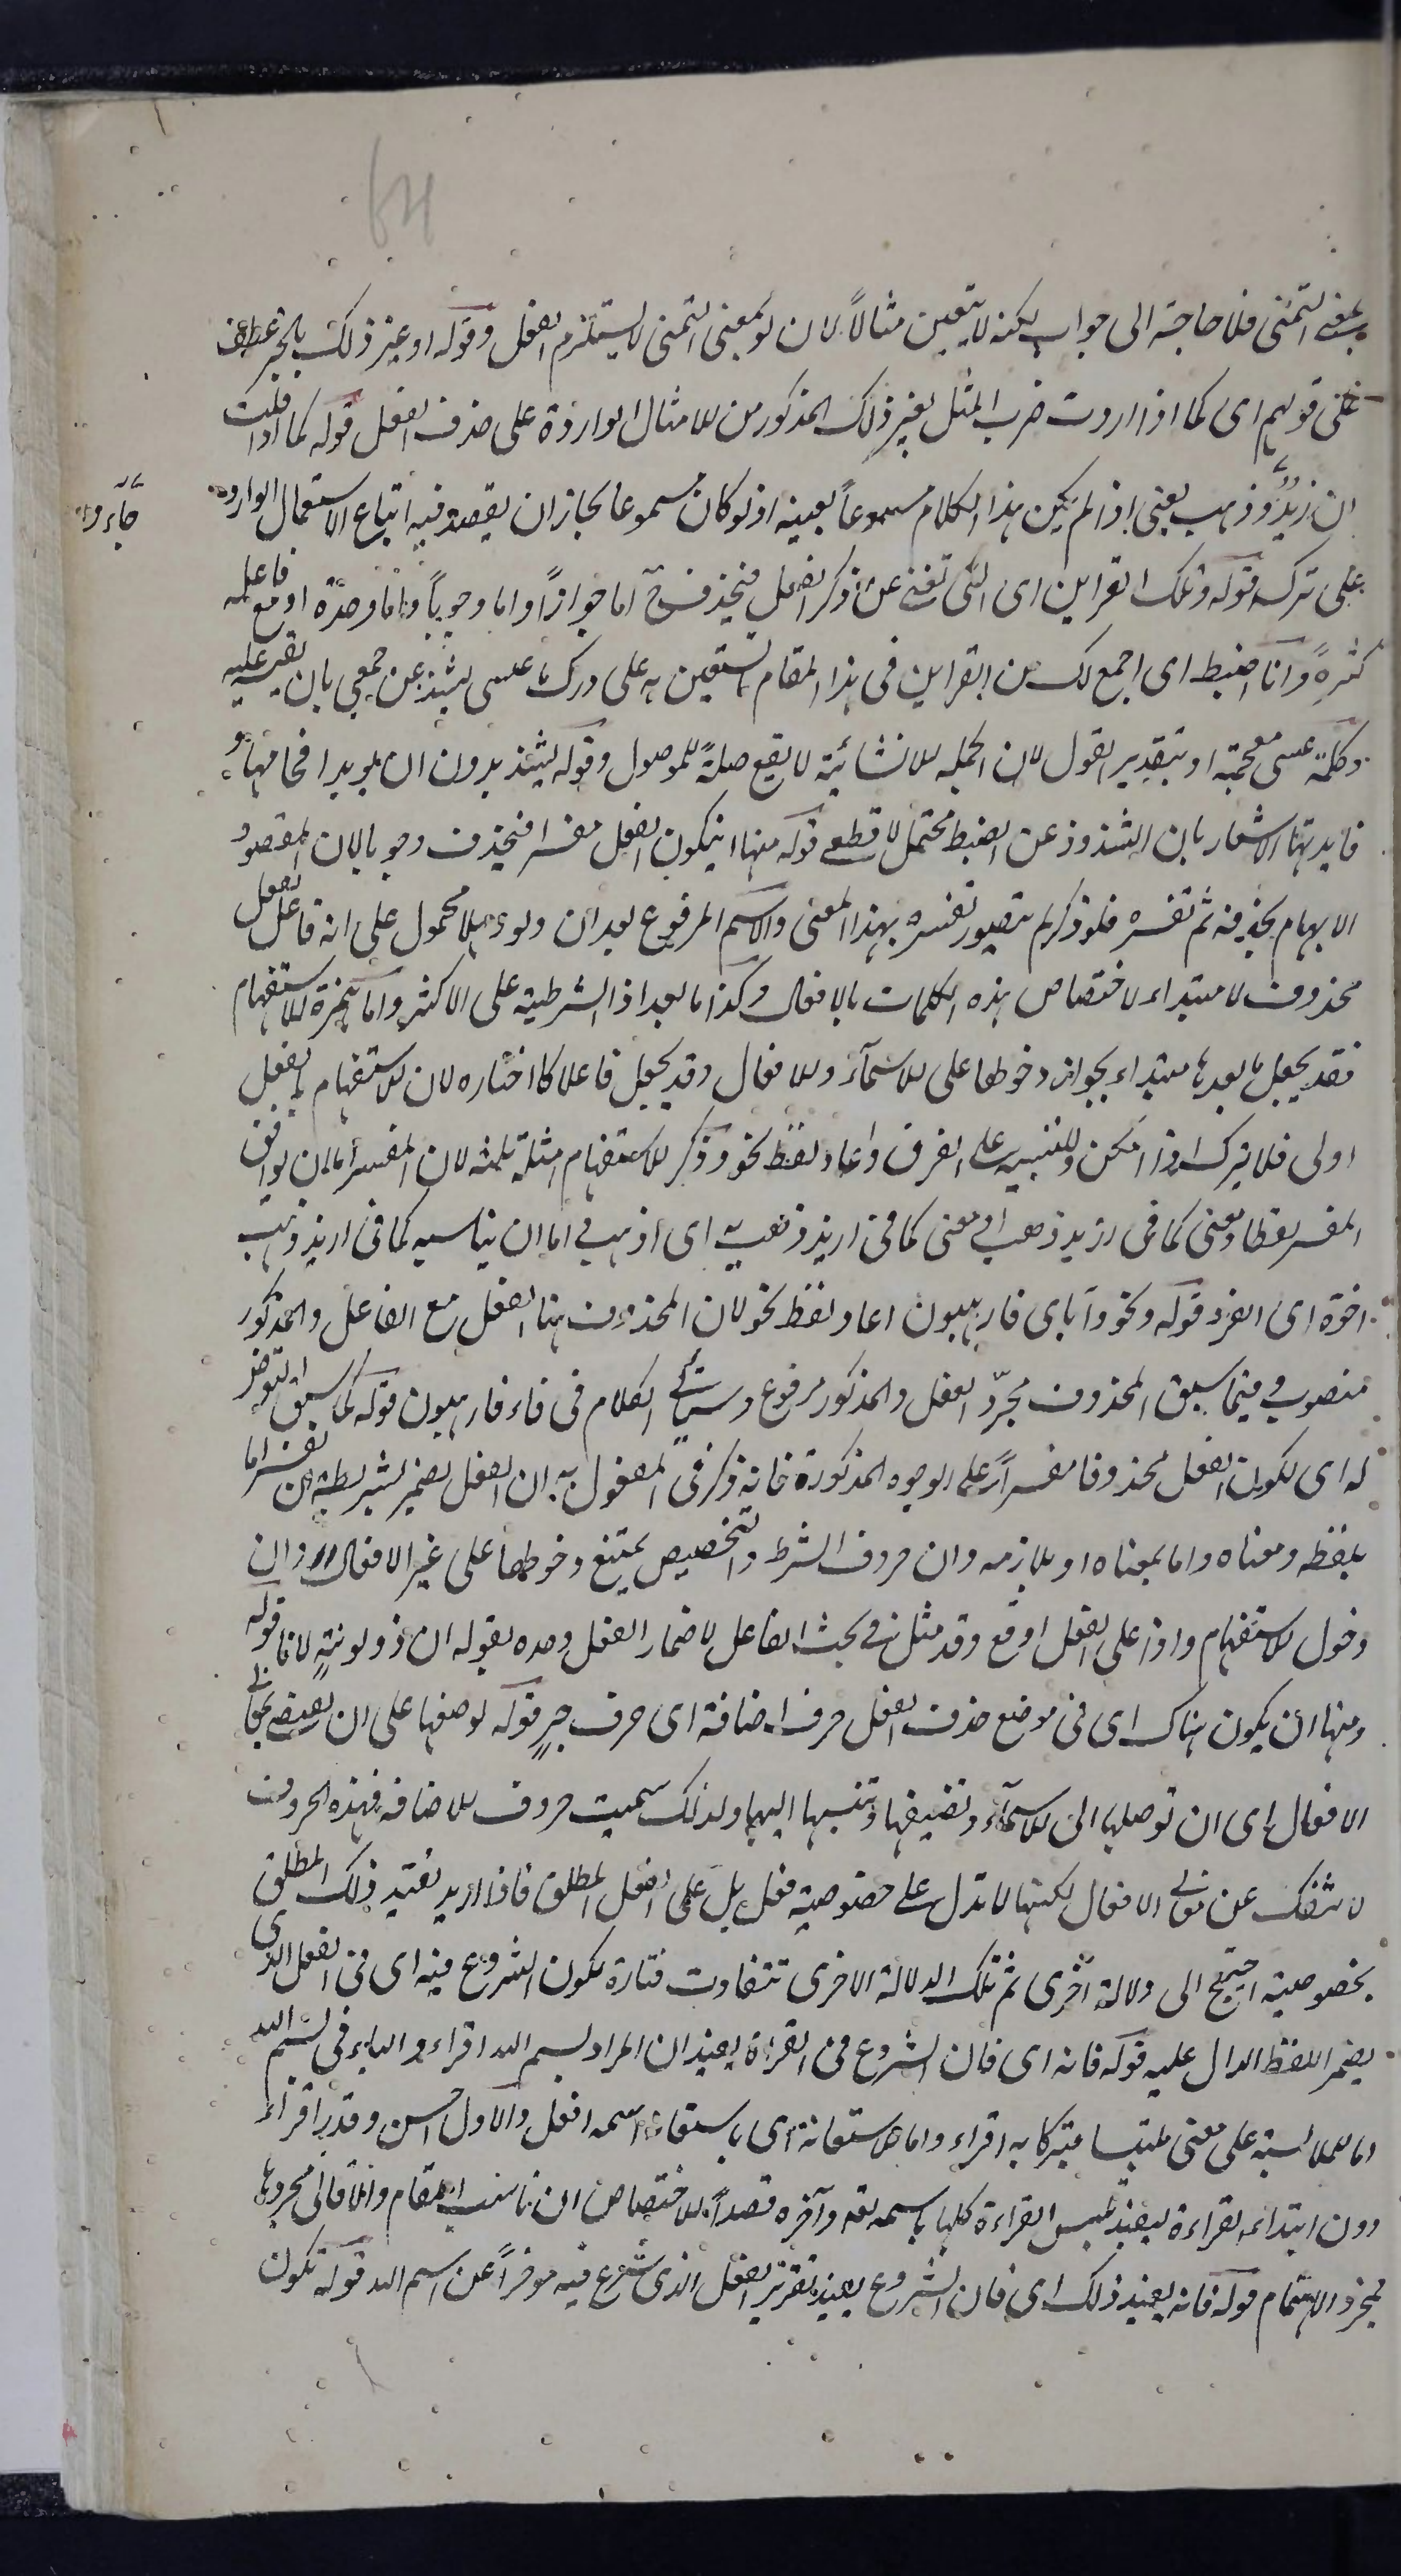 64
بمعنى التمنى فلا حاجة الى جواب لكنه لا يتعين مثالاً لان لو بمعنى التمنى لا يستلزم الفعل وقوله او غير ذلك بالجر عطف
على قولهم اى كما اذا اردت ضرب المثل بغير ذلك المذكور من الامثال الواردة على حذف الفعل قوله كما اذا قلت
ان زيدٌ وذهب يعنى اذا لم يكن هذا الكلام مسموعاً بعينه اذ لو كان مسموعا لجاز ان يقصد فيه اتباع الاستعمال الوارد
جاء و
على تركه قوله وتلك القراين اى التى تغنى عن ذكر الفعل فيحذف ح اما جوازاً واما وجوباً واما وحدة او مع فاعله
كثيرة وانا اضبط اى اجمع لك من القراين فى هذا المقام تستعين به على درك ما عسى يشذ عن جمعى بان تقيس عليه
وكلمة عسى مقحمة او بتقدير القول لان الجملة الانشائية لا يقع صلةً للموصول وقوله يشذ بدون ان يويد اقحامها و
فايدتها الاشعار بان الشذوذ عن الضبط محتمل لا قطعى قوله منها ان يكون الفعل مفسرا فيحذف وجوبا لان المقصود
الابهام بحذفه ثم تفسره فلو ذكر لم يتصور تفسيره بهذا المعنى والاسم المرفوع بعد ان ولو وهلا محمول على انه فاعل لفعل
محذوف لا مبتداء لاختصاص هذه الكلمات بالافعال وكذا ما بعد اذا الشرطية على الاكثر واما همزة الاستفهام
فقد يجعل ما بعدها مبتداء لجواز دخولها على الاسمآء والافعال وقد يجعل فاعلا كما اختاره لان الاستفهام بالفعل
اولى فلا يترك اذا امكن وللتنبيه على الفرق واعاد لفظ نحو وذكر للاستفهام امثلة ثلثه لان المفسر اما ان يوافق
المفسر لفظا ومعنى كما فى ازيد ذهب او معنى كما فى ازيد ذهب به اى اذهب او اما ان يناسبه كما فى ازيد ذهب
اخوه اى الفرد قوله ونحو واياى فارهبون اعاد لفظ نحو لان المحذوف هنا الفعل مع الفاعل والمذكور
منصوب وفيما سبق المحذوف مجرّد الفعل والمذكور مرفوع وسياتى الكلام فى فاء فارهبون قوله كما سبق التعرض
له اى لكون الفعل محذوفا مفسراً على الوجوه المذكورة فانه ذكر فى المفعول به ان الفعل يضمر بشريطة ان يفسر اما
بلفظه ومعناه واما بمعناه او بلازمه وان حروف الشرط والتخصيص يمتنع دخولها على غير الافعال وان
دخول الاستفهام واذا على الفعل اوقع وقد مثل فى بحث الفاعل لاضمار الفعل وحده بقوله ان ذو لوثة لانا قوله
ومنها ان يكون هناك اى فى موضع حذف الفعل حرف اضافة اى حرف جرٍ قوله لوضعها على ان يفضى بمعانى
الافعال اى ان توصلها الى الاسمآء وتضيفها وتنسبها اليها ولذلك سميت حروف الاضافه فهذه الحروف
لا تنفك عن معانى الافعال لكنها لا تدل على خصوصية فعل بل على الفعل المطلق فاذا اريد تقييد ذلك المطلق
بخصوصية احتيج الى دلالة اخرى ثم تلك الدلالة الاخرى تتفاوت فتارة يكون الشروع فيه اى فى الفعل الذى
يضمر اللفظ الدال عليه قوله فانه اى فان الشروع فى القراءة يفيد ان المراد بسم الله اقراء والباء فى بسم الله
اما للملابسة على معنى ملتبسا متبركا به اقراء واما للاستعانة اى باستعانة اسمه افعل والاول احسن وقدر اقراء
دون ابتداء القراءة ليفيد تلبس القراءة كلها باسمه تعه وآخره قصداً للاختصاص ان ناسب المقام والا فالى مجردها
لمجرد الاهتمام قوله فانه يفيد ذلك اى فان الشروع يفيد تقرير الفعل الذى شرع فيه موخراً عن اسم الله قوله تكون